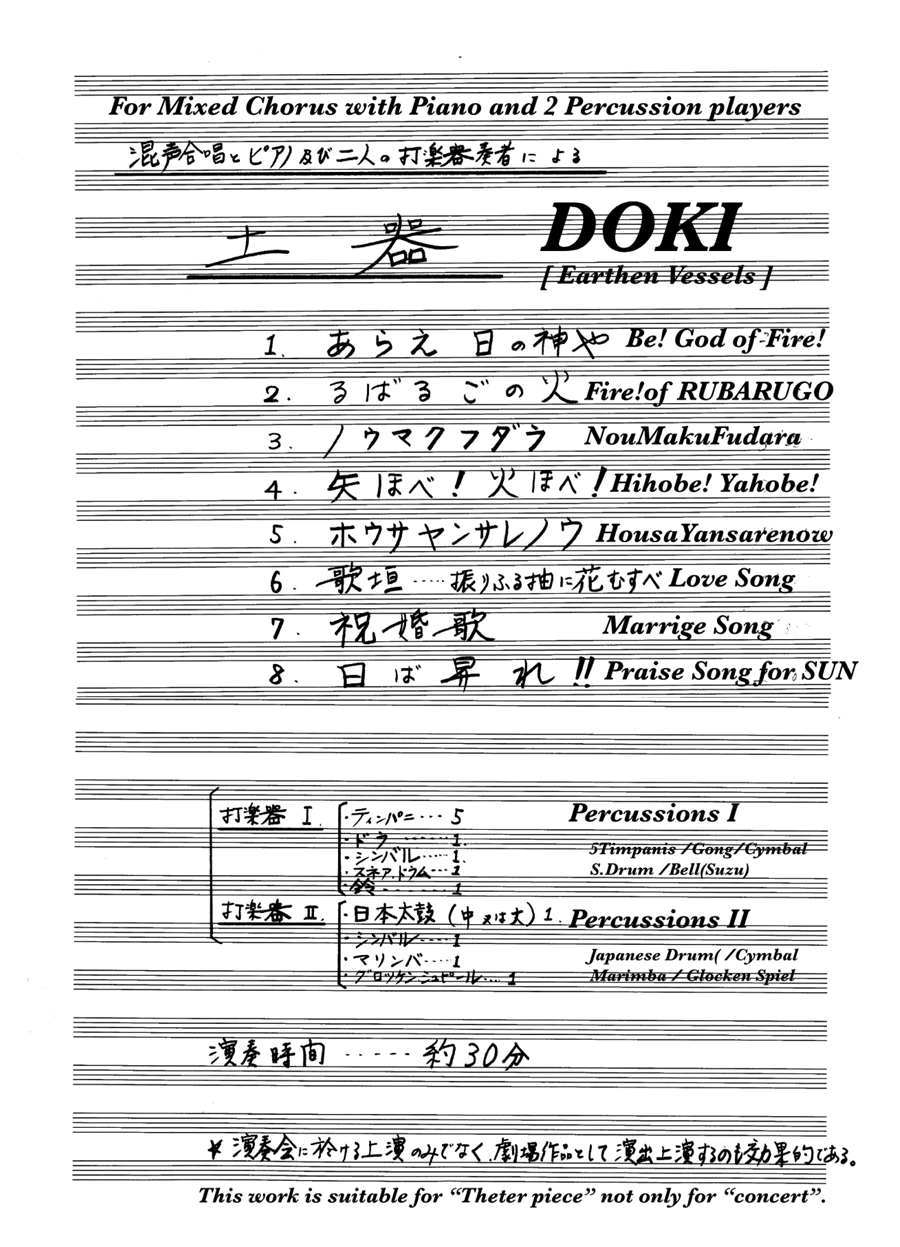 For Mixed Chorus with Piano and 2 Percussion players
混声合唱とピアノ及び二人の打楽器奏者による
土器 DOKI
[ Earthen Vessels ]
1. あらえ 日の神や Be! God of Fire!
2. るばる ごの火 Fire!of RUBARUGO
3. ノウマクフダラ NouMakuFudara
4. 矢ほべ! 火ほべ! Hihobe! Yahobe!
5. ホウサヤンサレノウ HousaYansarenow
6. 歌垣……振りふる抽に花むすべ Love Song
7. 祝婚歌 Marrige Song
8. 日ば昇れ!! Praise Song for SUN
打楽器 I ・ティンパニ…5 Percussions I
・ドラ……1. 5Timpanis /Gong/Cymbal
・シンバル……1.
・スネア.ドラム…1 S.Drum /Bell(Suzu)
・鈴……1
打楽器 II. ・日本太鼓(中又は大)1. Percussions II
・シンバル……1
・マリンバ…1 Japanese Drum( /Cymbal
・グロッケンシュピール…1 Marimba / Glocken Spiel
演奏時間……約30分
* 演奏会に於ける上演のみでなく、劇場作品として演出上演するのも効果的である。
This work is suitable for “Theter piece” not only for “concert”.